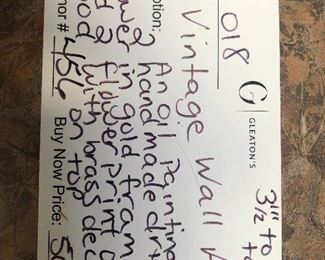 3 1/2" to
to
G
GLEATON'S
018
Vintage Wall
ption: An oil Painting
2 handmade
wer in gold fram
d 2 flower print
with brass dec
on top
nor # 456 Buy Now Price: 50